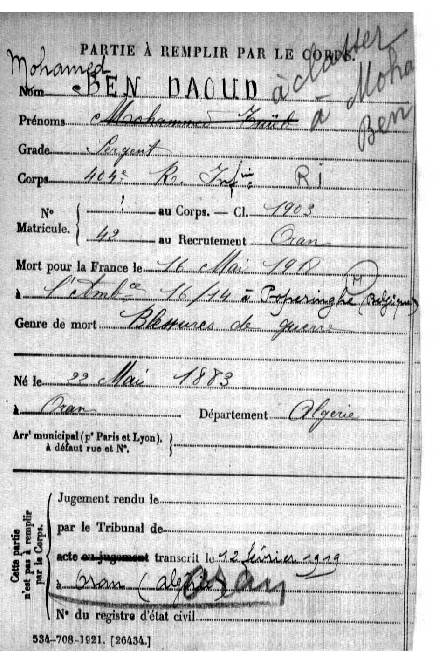 PARTIE À REMPLIR PAR LE CORPS.
à classer
à Moha
Ben
Mohamed
Nom BEN DAOUD
Prénoms Mohammed
Grade Sergent
Corps 404e R. Infie RI
No Matricule. { 1 au Corps. — Cl. 1903
42 au Recrutement Oran
Mort pour la France le 16 Mai 1918
à l'Ambce 16/14 à Poperinghe (Belgique)
Genre de mort Blessures de guerre
Né le 22 Mai 1883
à Oran Département Algérie
Arrt municipal (pr Paris et Lyon),
à défaut rue et No.
Cette partie
n'est pas à remplir
par le Corps.
Jugement rendu le
par le Tribunal de
acte ou jugement transcrit le 12 février 1919
à Oran (Algérie) Oran
No du registre d'état civil
534-708-1921. [26434.]